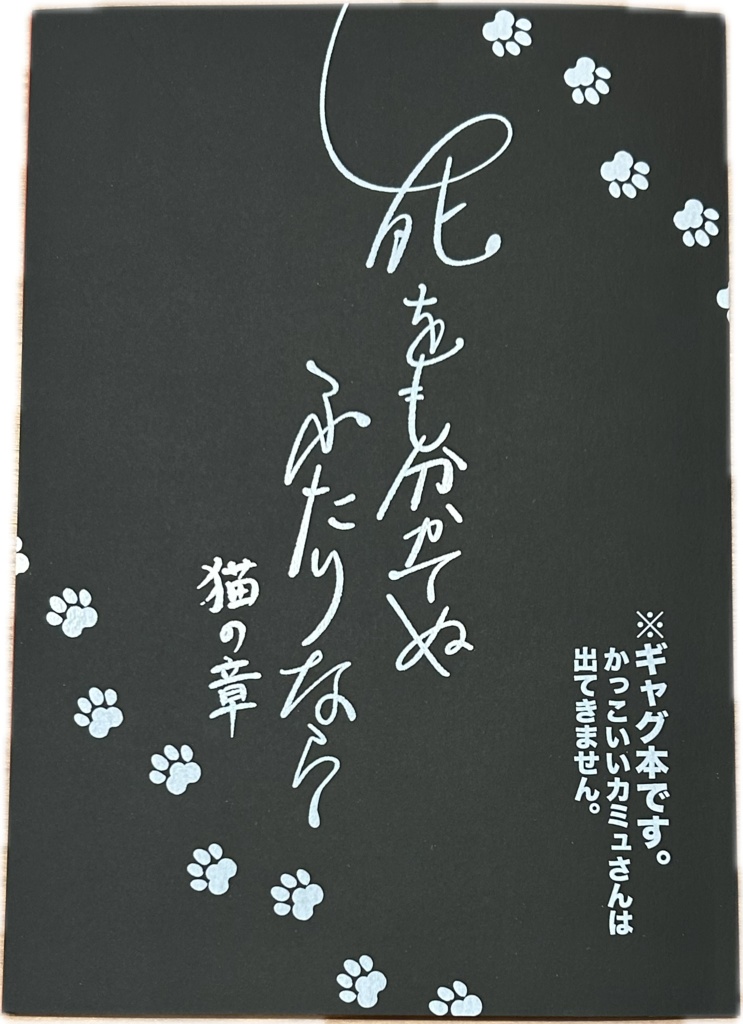 死をも分かてぬ
ふたりなら
猫の章
※ギャグ本です。
かっこいいカミュさんは
出てきません。